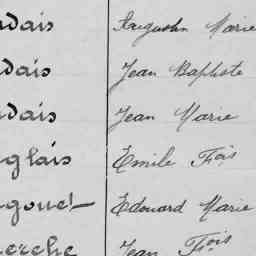 dais Augustin Marie
dais Jean Baptiste
dais Jean Marie
glais Emile Fois
goul Edouard Marie
erche Jean Fois